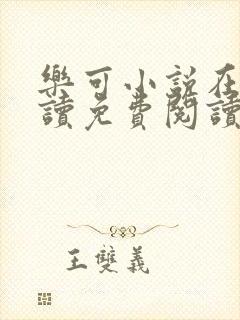 樂可小說在
讀免費閱讀
王雙義